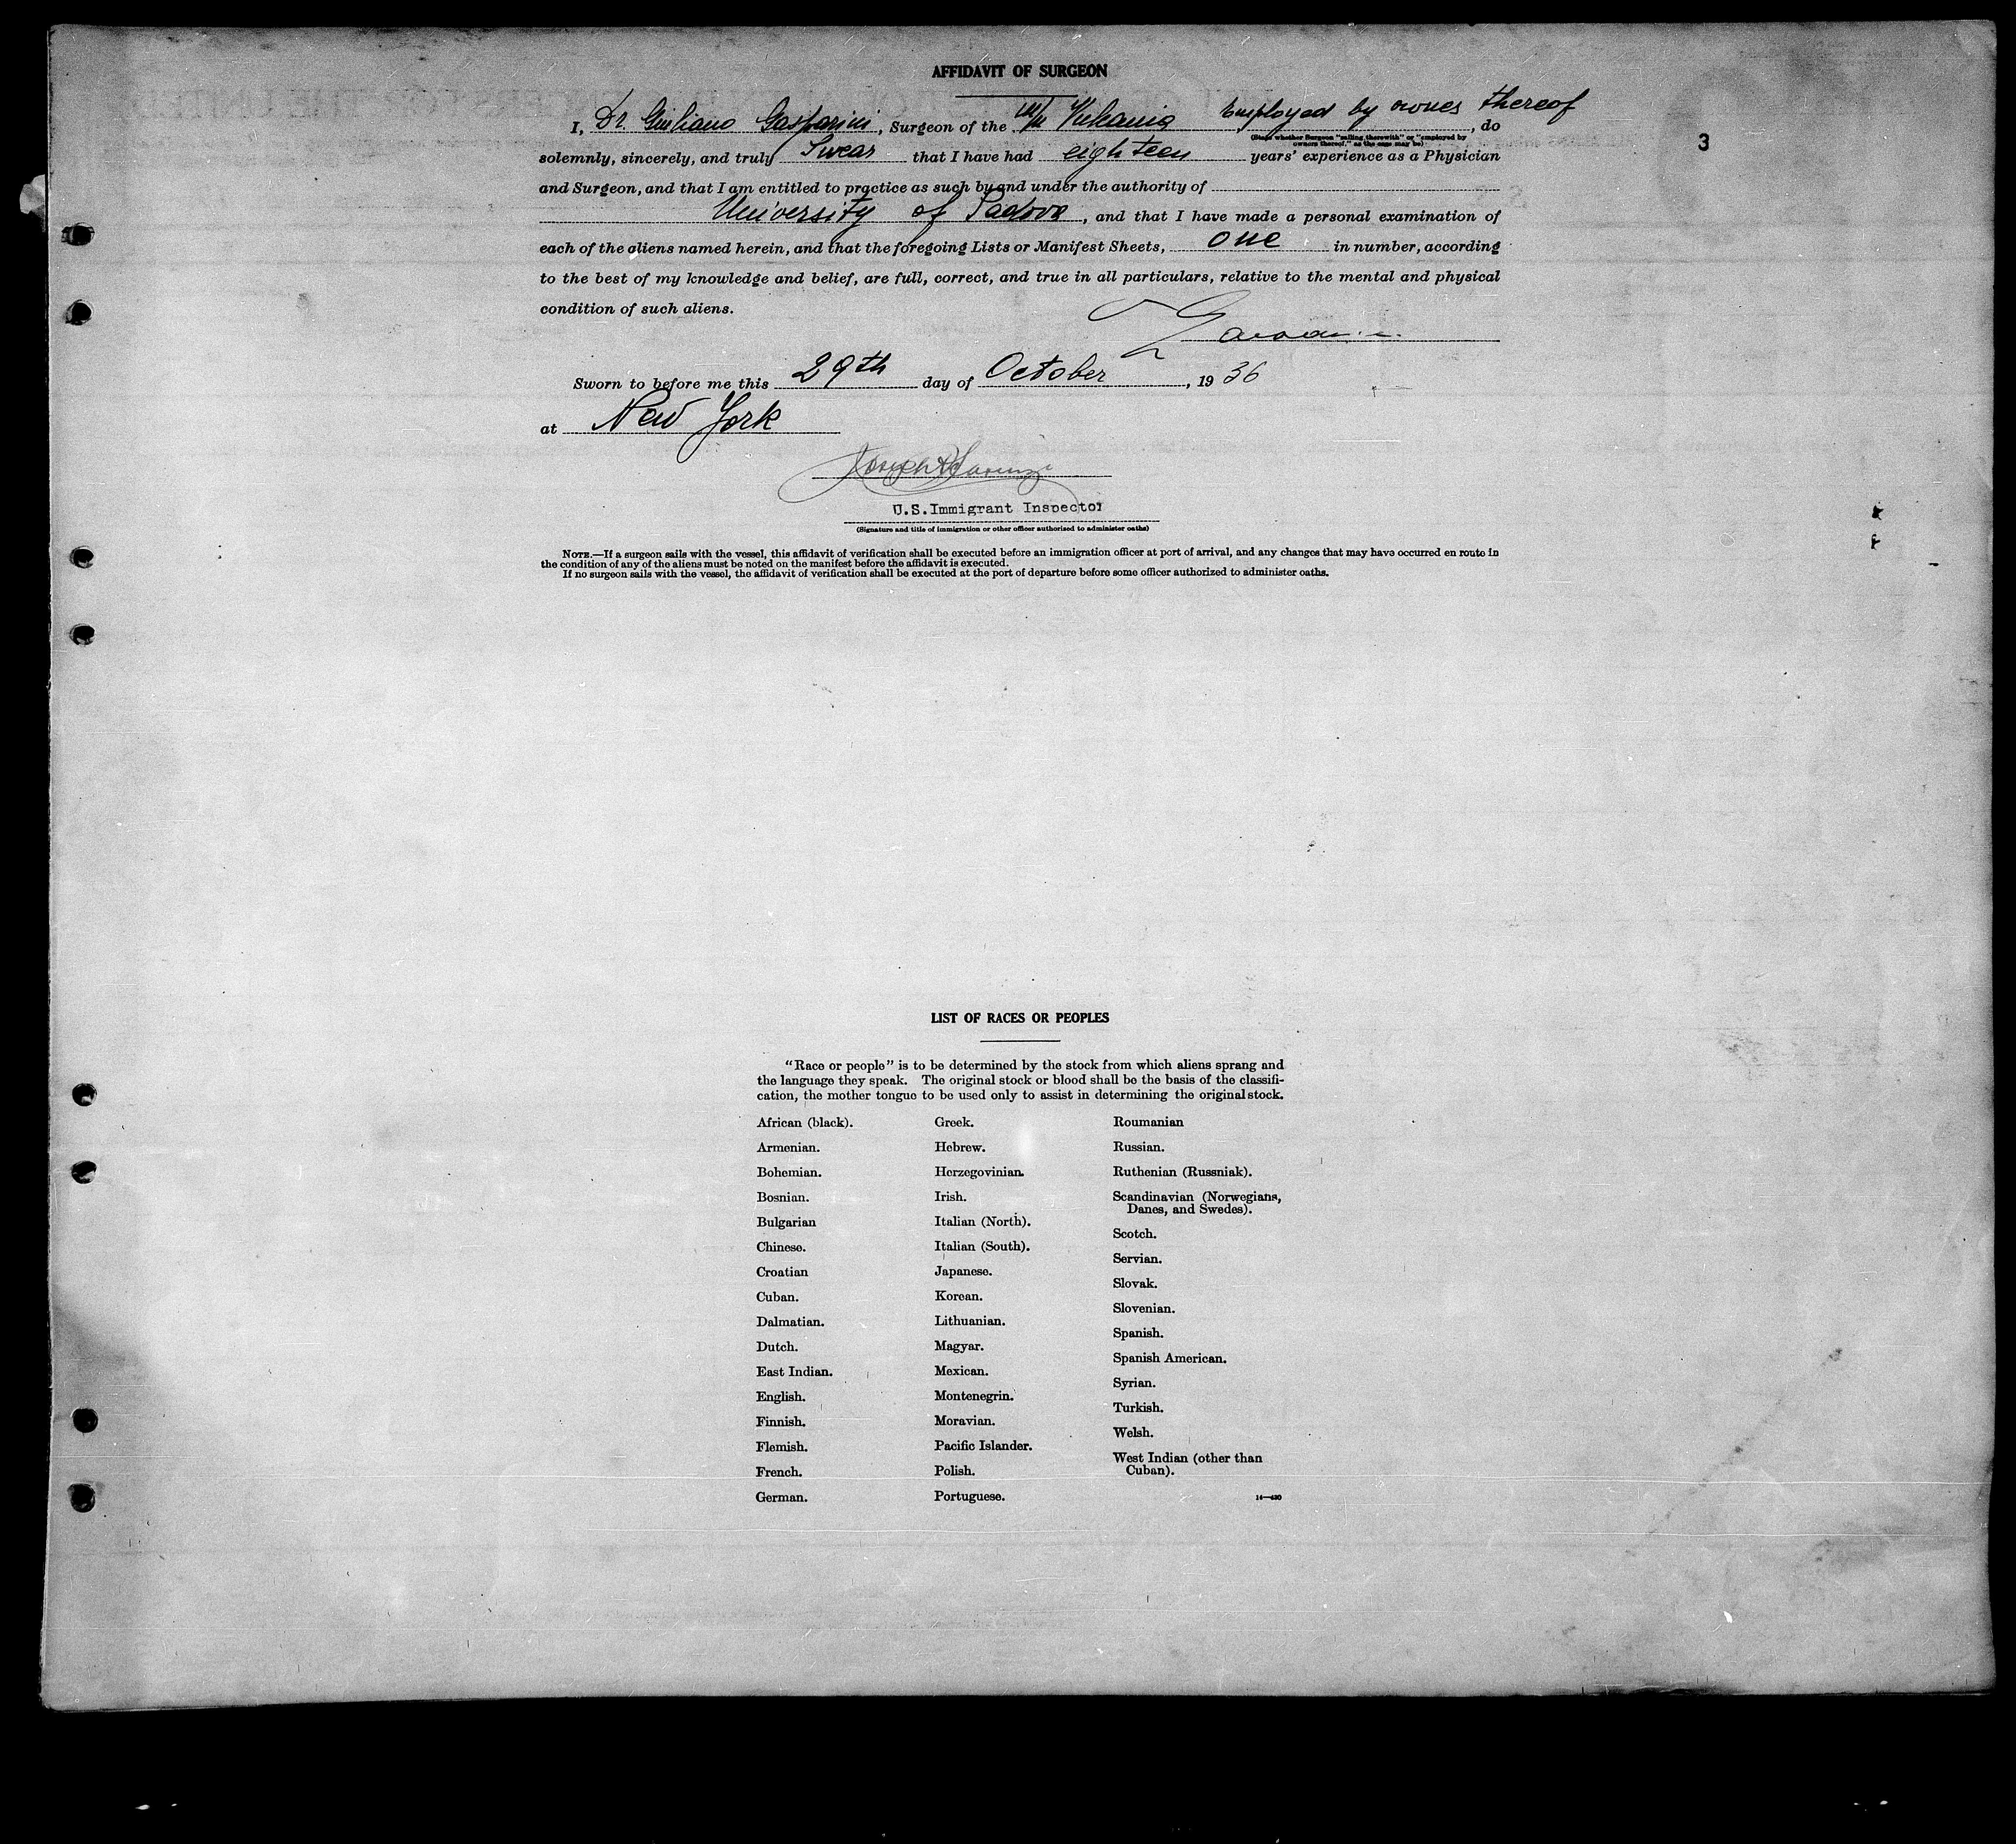 AFFIDAVIT OF SURGEON
I, Dr. Giuliano Gasparini, Surgeon of the M/V Vulcania Employed by owner thereof, do
(State whether Surgeon "sailing therewith" or "employed by
owners thereof," as the case may be)
3
solemnly, sincerely, and truly Swear that I have had eighteen years' experience as a Physician
and Surgeon, and that I am entitled to practice as such by and under the authority of
University of Padova, and that I have made a personal examination of
each of the aliens named herein, and that the foregoing Lists or Manifest Sheets, one in number, according
to the best of my knowledge and belief, are full, correct, and true in all particulars, relative to the mental and physical
condition of such aliens.
Sworn to before me this 29th day of October, 1936
at New York
U.S.Immigrant Inspector
(Signature and title of immigration or other officer authorized to administer oaths)
NOTE.—If a surgeon sails with the vessel, this affidavit of verification shall be executed before an immigration officer at port of arrival, and any changes that may have occurred en route in
the condition of any of the aliens must be noted on the manifest before the affidavit is executed.
If no surgeon sails with the vessel, the affidavit of verification shall be executed at the port of departure before some officer authorized to administer oaths.
LIST OF RACES OR PEOPLES
"Race or people" is to be determined by the stock from which aliens sprang and
the language they speak. The original stock or blood shall be the basis of the classifi-
cation, the mother tongue to be used only to assist in determining the original stock.
African (black).
Armenian.
Bohemian.
Bosnian.
Bulgarian
Chinese.
Croatian
Cuban.
Dalmatian.
Dutch.
East Indian.
English.
Finnish.
Flemish.
French.
German.
Greek.
Hebrew.
Herzegovinian.
Irish.
Italian (North).
Italian (South).
Japanese.
Korean.
Lithuanian.
Magyar.
Mexican.
Montenegrin.
Moravian.
Pacific Islander.
Polish.
Portuguese.
Roumanian
Russian.
Ruthenian (Russniak).
Scandinavian (Norwegians,
Danes, and Swedes).
Scotch.
Servian.
Slovak.
Slovenian.
Spanish.
Spanish American.
Syrian.
Turkish.
Welsh.
West Indian (other than
Cuban).